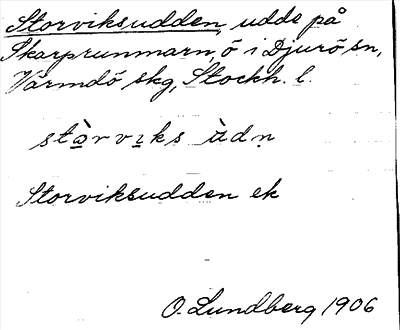 Storviksudden, udde på
Skarprunmarn, ö i Djurö sn,
Värmdö skg, Stockh. l.
stàrvıks ùdṇ
Storviksudden ek
O. Lundberg 1906